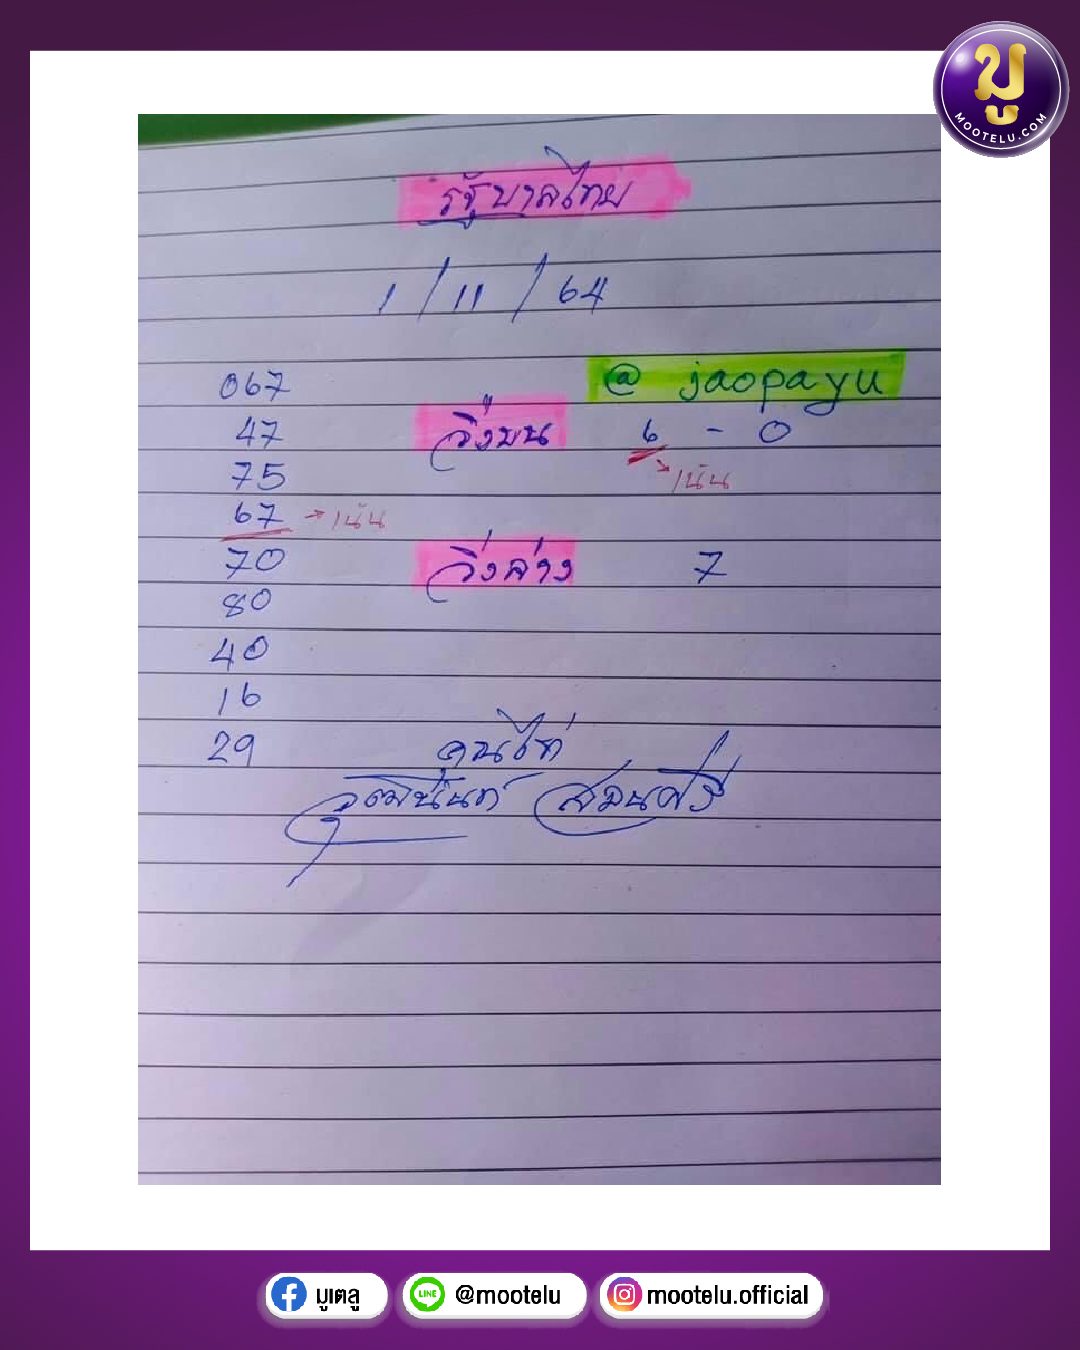 มู
MOOTELU.COM
รัฐบาลไทย
1/11/64
067
@ jaopayu
47
วิ่งบน 6 - 0
75
→เน้น
67 →เน้น
70
วิ่งล่าง 7
80
40
16
29
คุนไท่
วุฒินันท์ สมนศรี
มูเตลู
LINE
@mootelu
mootelu.official